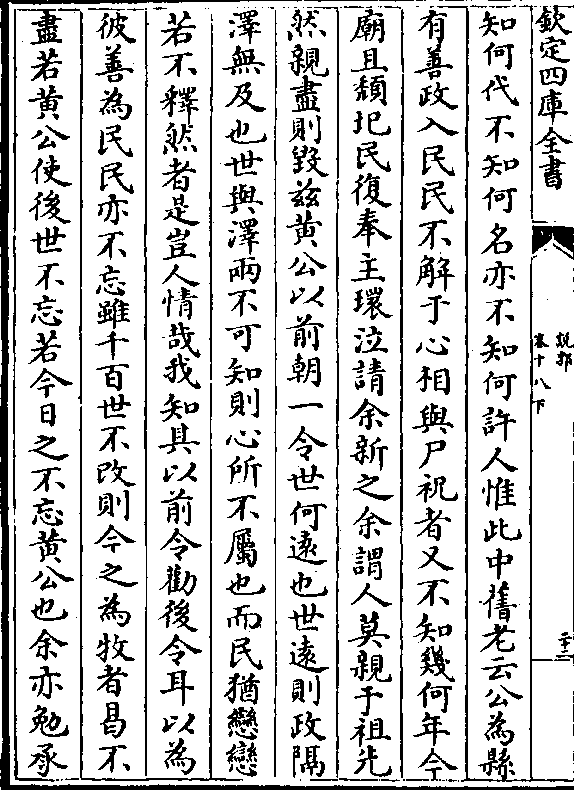 欽定四庫全書
說郛
卷十八下
二十二
知何代不知何名亦不知何許人惟此中舊老云公為縣
有善政入民民不解于心相與尸祝者又不知幾何年今
廟且頽圮民復奉主環泣請余新之余謂人莫親于祖先
然親盡則毀兹黄公以前朝一令世何遠也世遠則政隔
澤無及也世與澤兩不可知則心所不屬也而民猶戀戀
若不釋然者是豈人情哉我知具以前令勸後令耳以為
彼善為民民亦不忘雖千百世不改則今之為牧者曷不
盡若黄公使後世不忘若今日之不忘黄公也余亦勉承